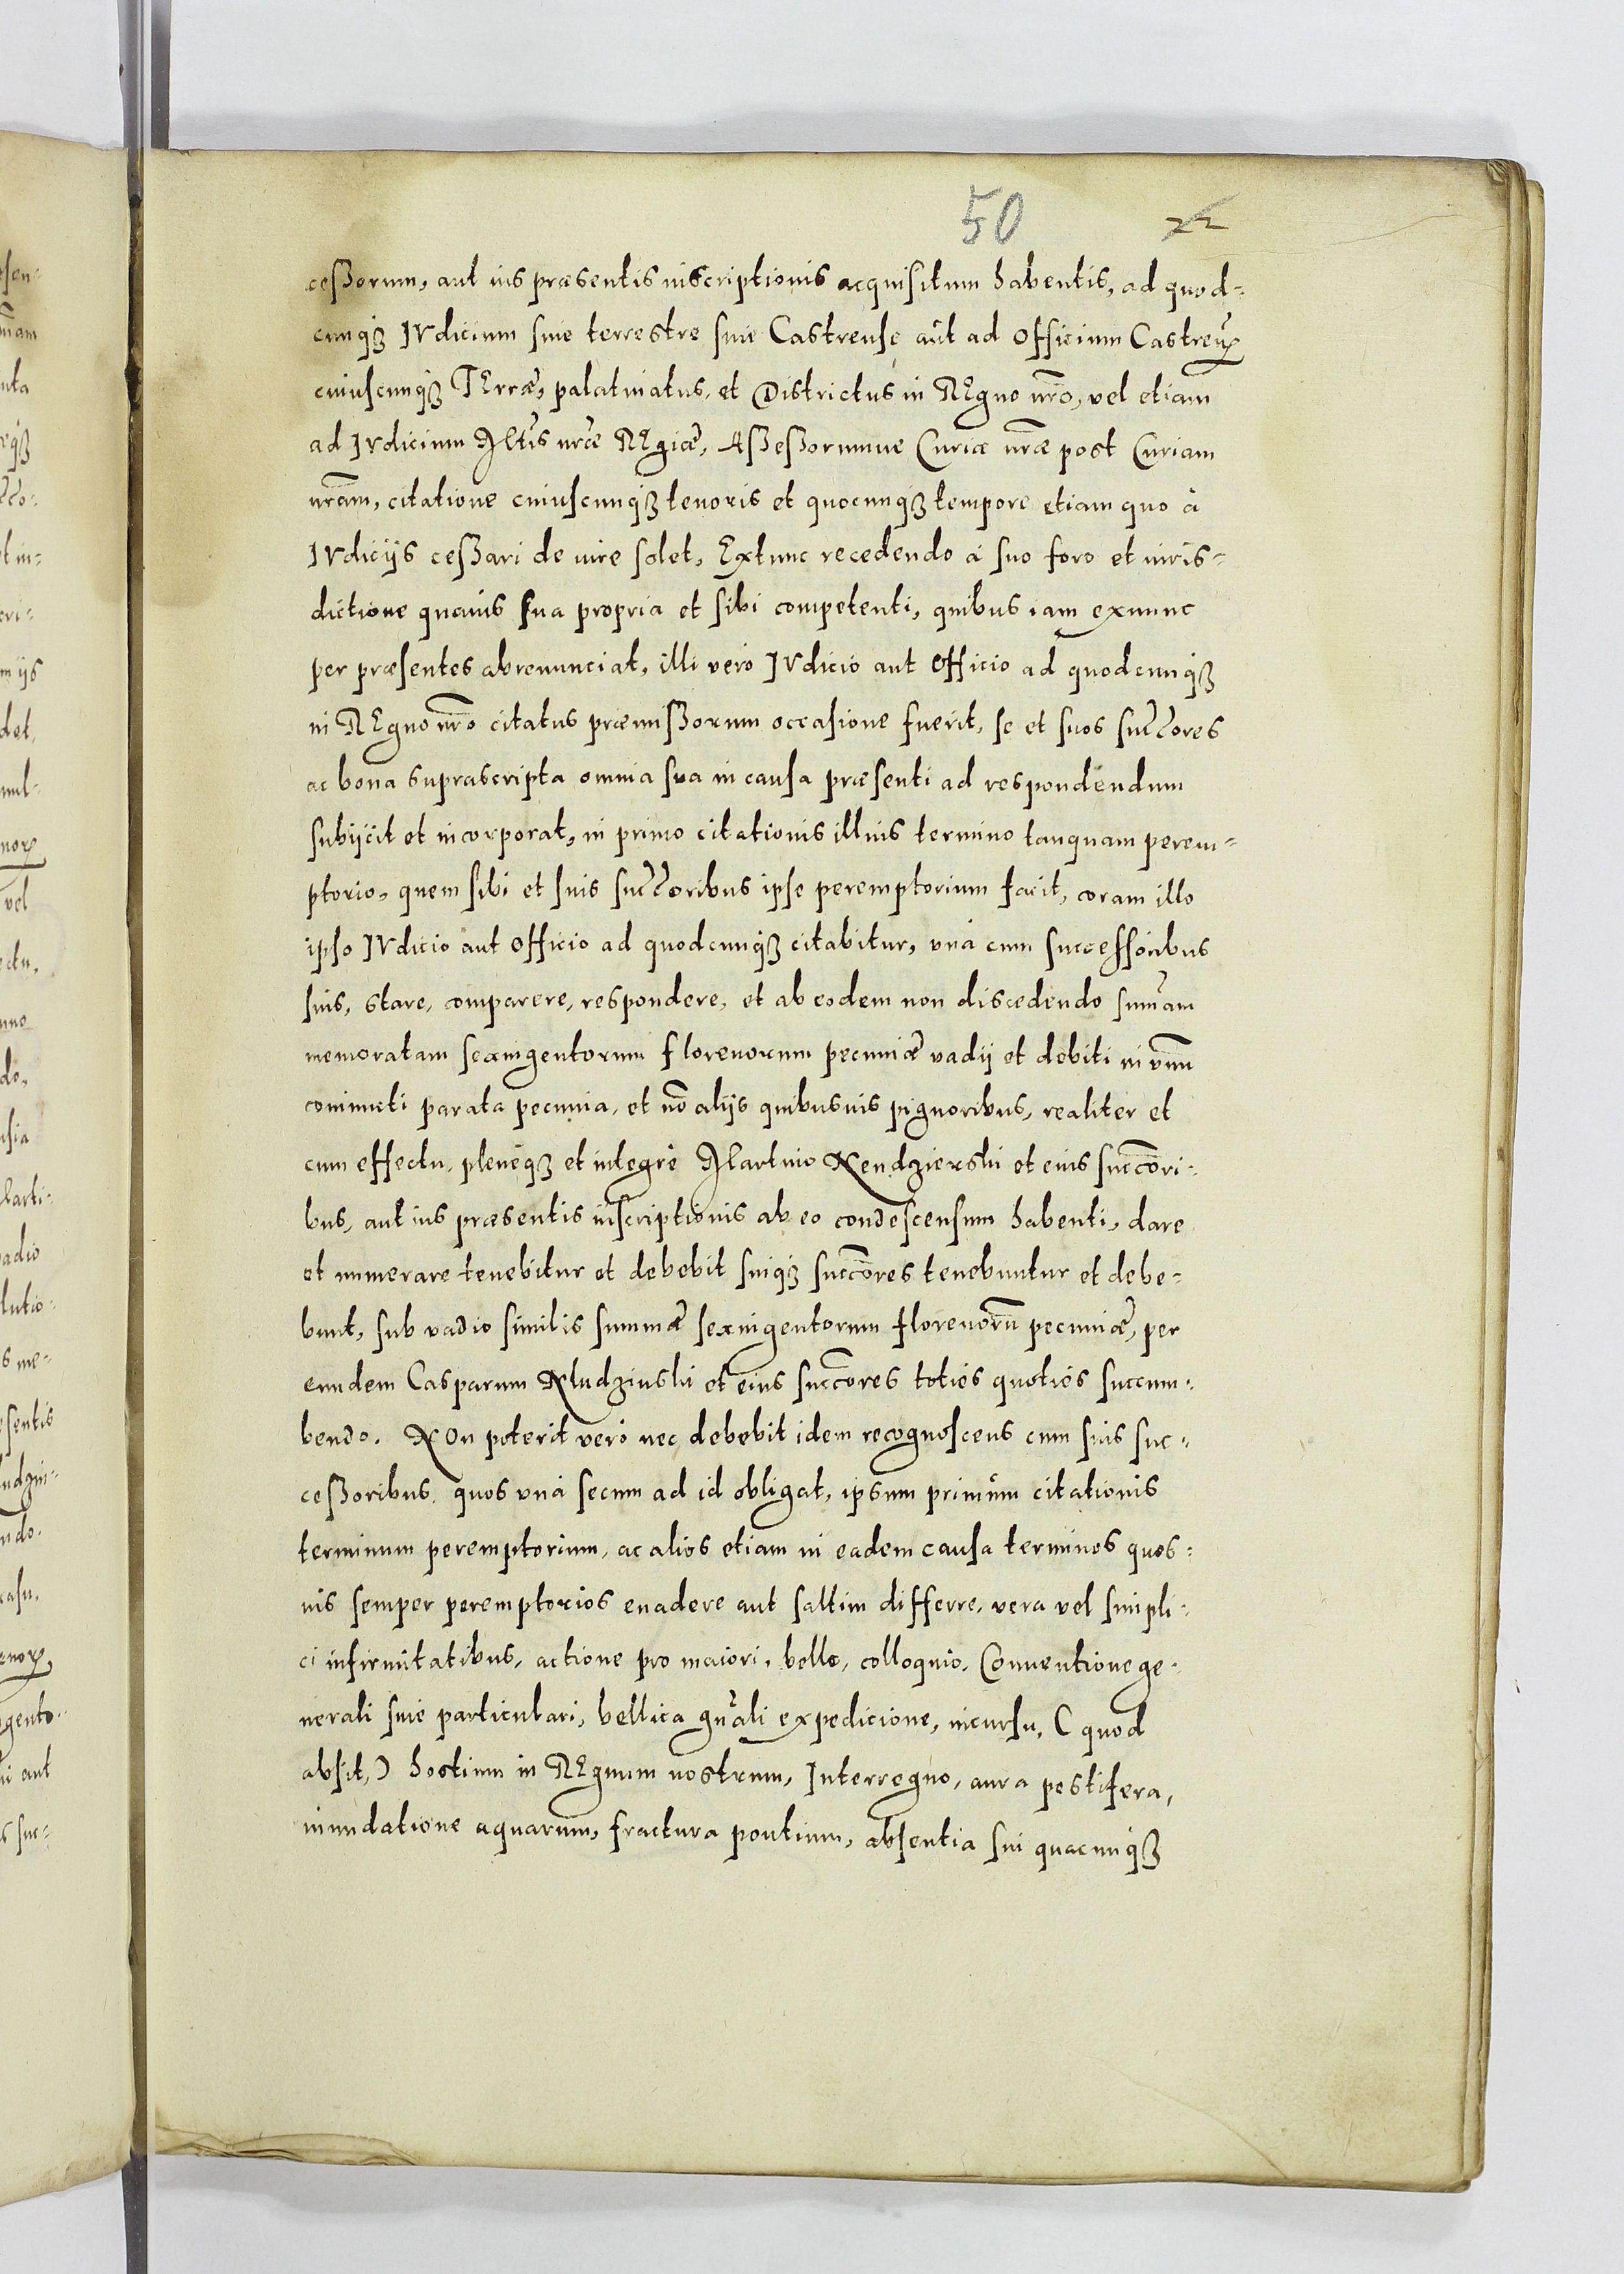 50 22
ceßorum, aut ius præsentis inscriptionis acquisitum habentis, ad quod-
cunqꝫ IVdicium siue terrestre siue Castrense aût ad Officium Castreñ
cuiuscunqꝫ TErræ, palatinatus, et Districtus in REgno nr̃o, vel etiam
ad IVdicium Mtis nr̃æ REgiæ, Aßeßorumue Curiæ nr̃æ post Curiam
nr̃am, citatione cuiuscunqꝫ tenoris et quocunqꝫ tempore etiam quo à
IVdicijs ceßari de iure solet, Extunc recedendo à suo foro et iuris-
dictione quauis sua propria et sibi competenti, quibus iam exnunc
per præsentes abrenunciat, illi vero IVdicio aut Officio ad quodcunqꝫ
in REgno nr̃o citatus præmißorum occasione fuerit, se et suos succ̃ores
ac bona suprascripta omnia sua in causa præsenti ad respondendum
subijcit et incorporat, in primo citationis illius termino tanquam perem-
ptorio, quem sibi et suis succ̃oribus ipse peremptorium facit, coram illo
ipso IVdicio aut Officio ad quodcunqꝫ citabitur, vnà cum successoribus
suis, stare, comparere, respondere, et ab eodem non discedendo sum̃am
memoratam sexingentorum florenorum pecuniæ vadij et debiti in vnũ
coniuncti parata pecunia, et nõ alijs quibusuis pignoribus, realiter et
cum effectu, plenèqꝫ et integrè Martino Nendzierski et eius succ̃ori-
bus, aut ius præsentis inscriptionis ab eo condescensum habenti, dare
et numerare tenebitur et debebit suiqꝫ succ̃ores tenebuntur et debe-
bunt, sub vadio similis summæ sexingentorum florenorũ pecuniæ, per
eundem Casparum Kludzinski et eius succ̃ores totiès quotiès succum-
bendo. NOn poterit verò nec debebit idem recognoscens cum suis suc-
ceßoribus, quos vnà secum ad id obligat, ipsum primum citationis
terminum peremptorium, ac alios etiam in eadem causa terminos quos-
uis semper peremptorios euadere aut saltim differre, vera vel simpli-
ci infirmitatibus, actione pro maiori, bello, colloquio, Conuentione ge-
nerali siue particulari, bellica gñali expedicione, incursu, ( quod
absit, ) hostium in REgnum nostrum, Interregno, aura pestifera,
inundatione aquarum, fractura pontium, absentia sui quacunqꝫ